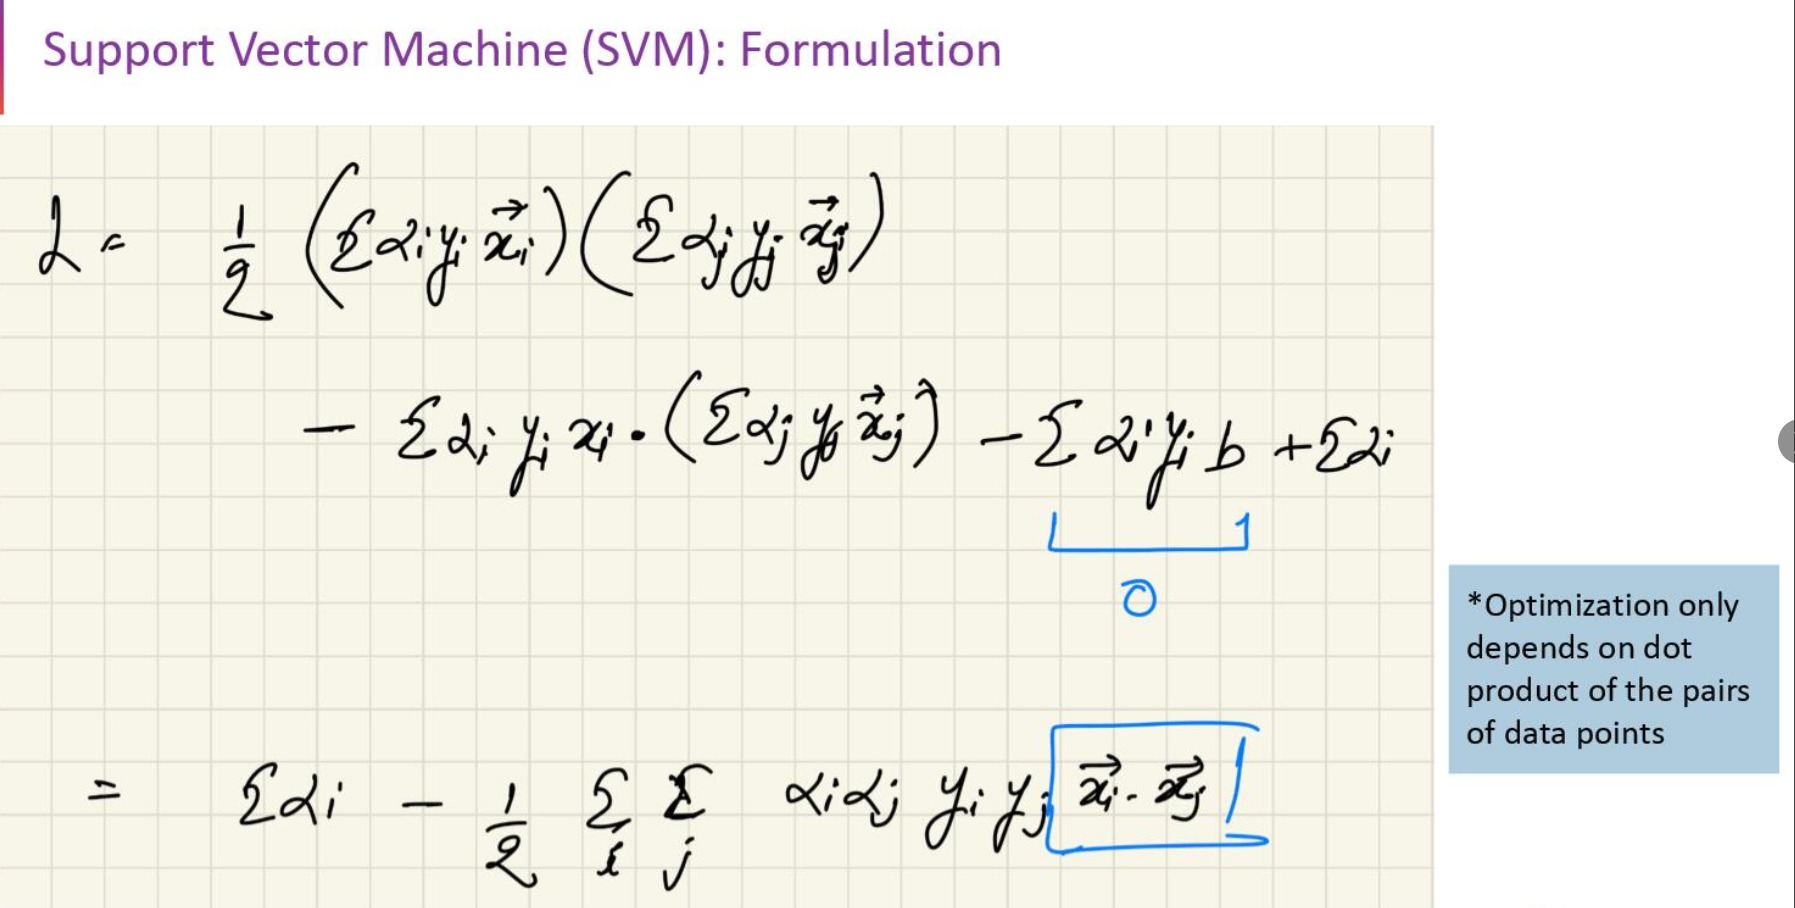 Support Vector Machine (SVM): Formulation
L = 1/2 (Σ αᵢ yᵢ x⃗ᵢ) (Σ αⱼ yⱼ x⃗ⱼ)
− Σ αᵢ yᵢ xᵢ · (Σ αⱼ yⱼ x⃗ⱼ) − Σ αᵢ yᵢ b + Σ αᵢ
0
= Σ αᵢ − 1/2 Σᵢ Σⱼ αᵢ αⱼ yᵢ yⱼ x⃗ᵢ · x⃗ⱼ
*Optimization only
depends on dot
product of the pairs
of data points